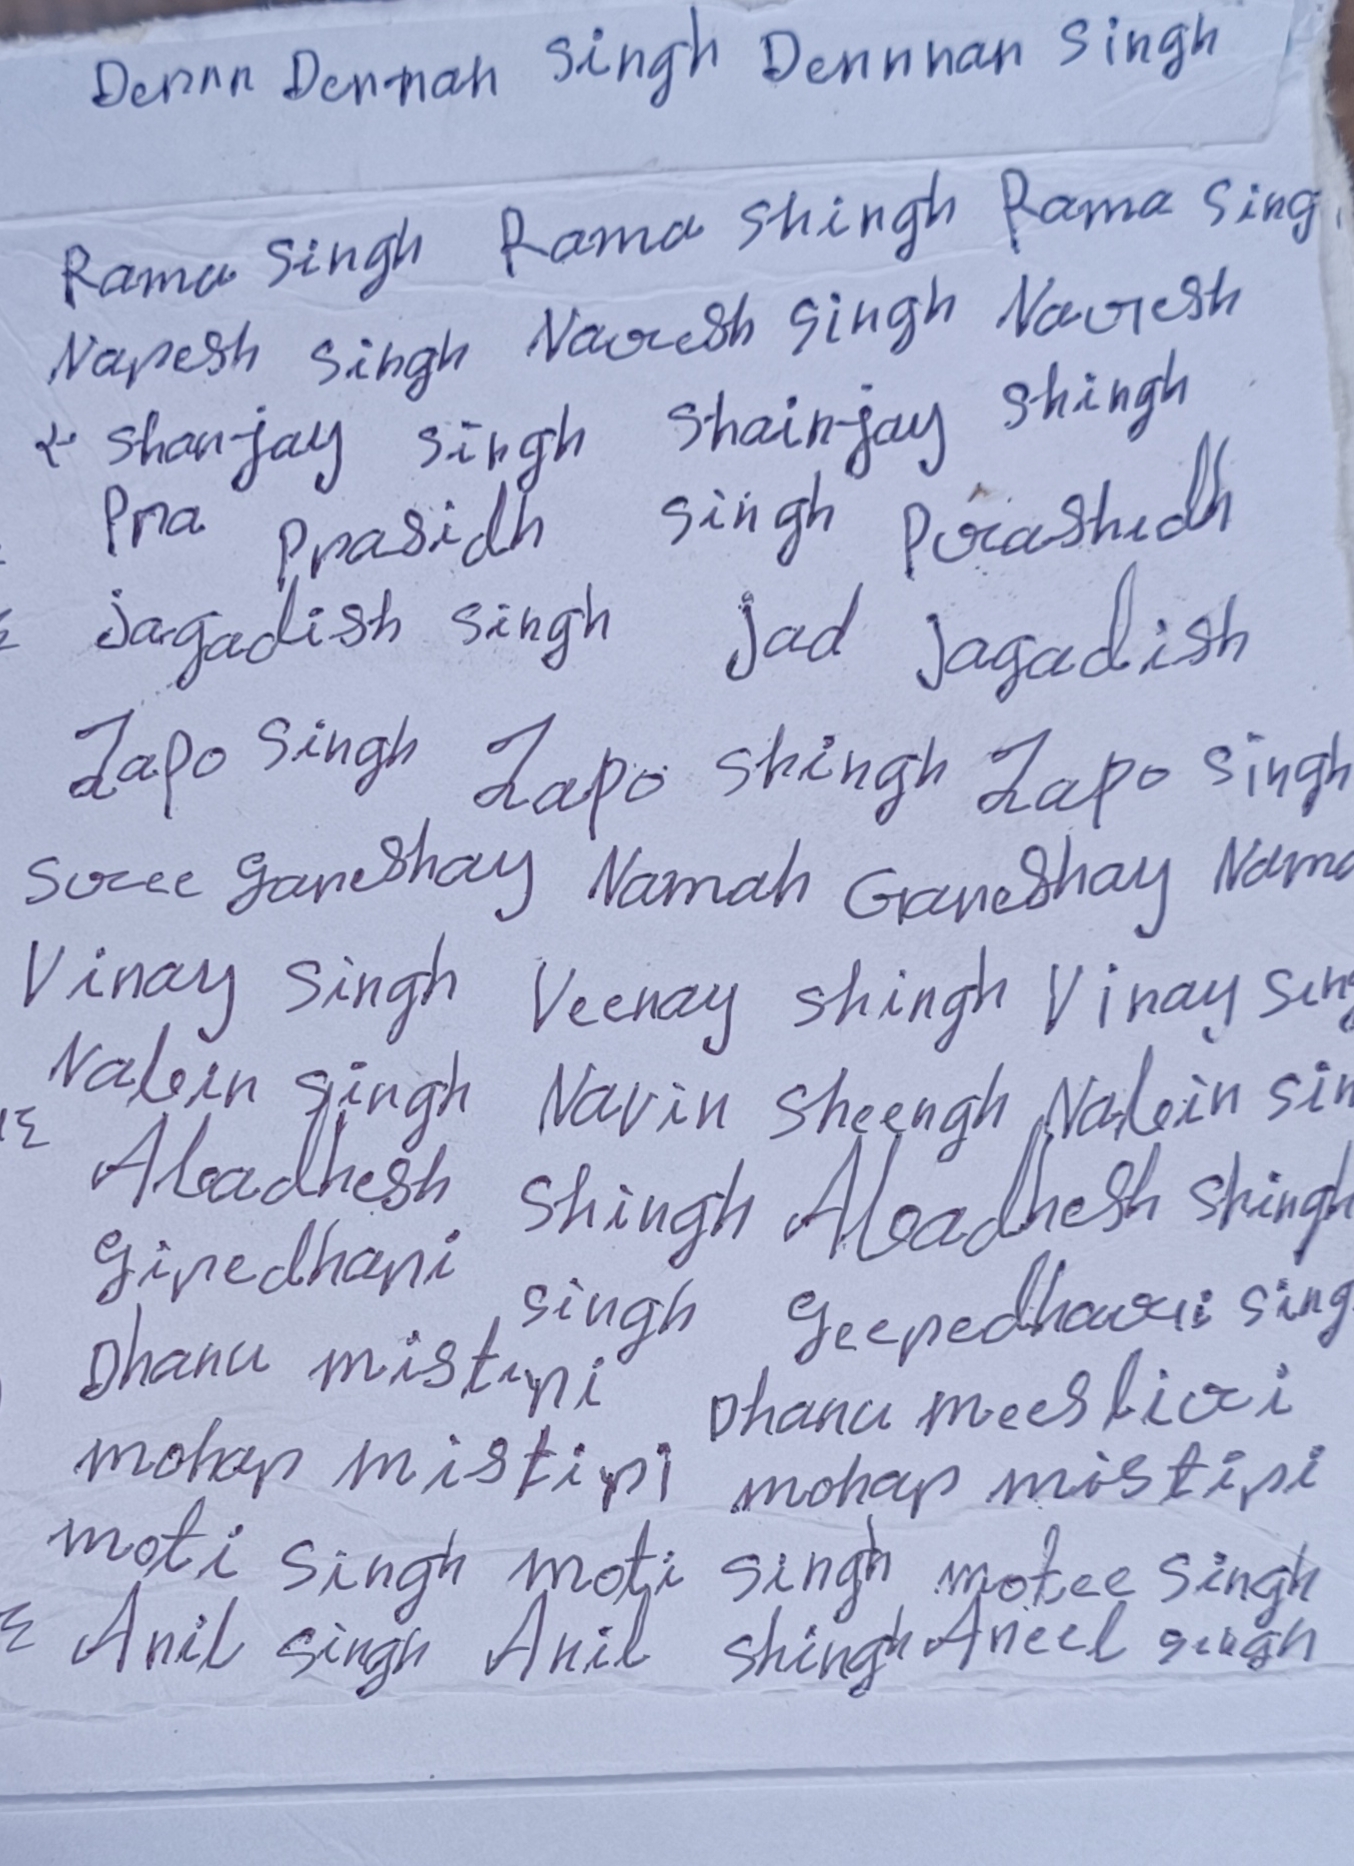 Dennn Dennah Singh Dennnan Singh
Rama Singh Rama Shingh Rama Sing
Naresh Singh Naresh Singh Naresh
Shanjay Singh Shainjay Shingh
Pra Prasidh Singh Prashidh
jagadish Singh jad jagadish
Zapo Singh Zapo Shingh Zapo Singh
Sree ganeshay Namah Ganeshay Nama
Vinay Singh Veenay Shingh Vinay Sing
Nabin Singh Navin Sheengh Nabin Sin
Abadhesh Shingh Abadhesh Shingh
giredhari Singh geeredhari Sing
Dhanu mistiri Dhanu meestiri
mohar mistiri mohar mistiri
moti Singh moti Singh motee Singh
Anil Singh Anil Shingh Aneel Singh